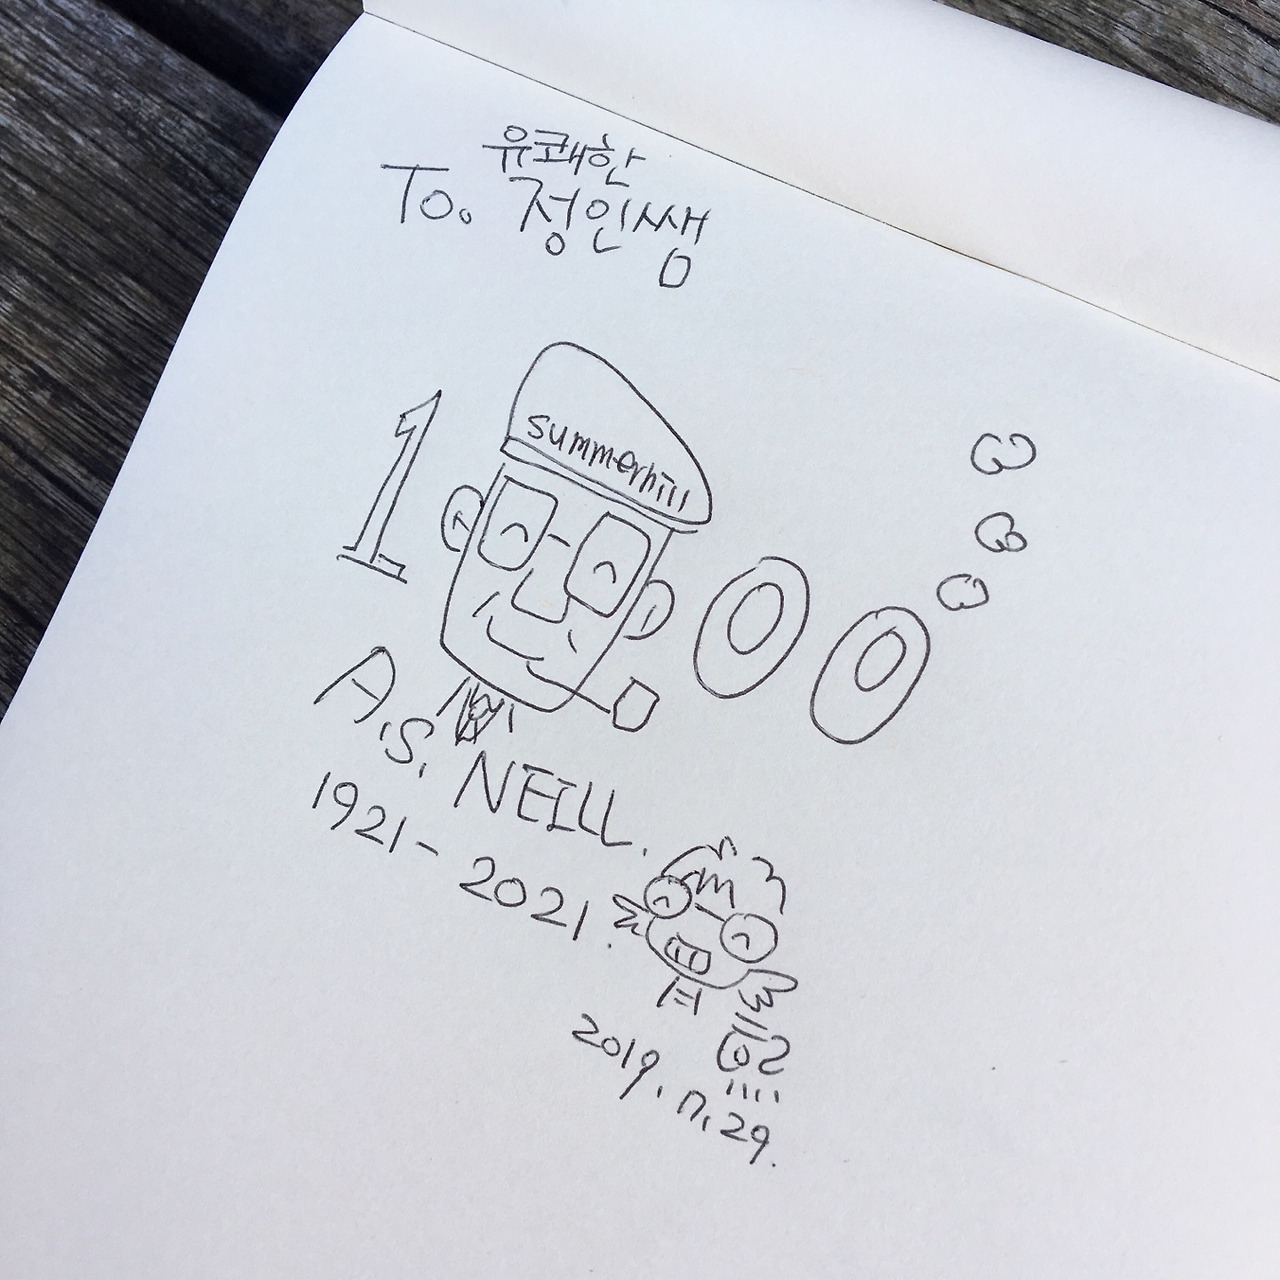 유쾌한
To. 정인쌤
summerhill
100
A.S. NEILL.
1921-2021.
2019.7.29.